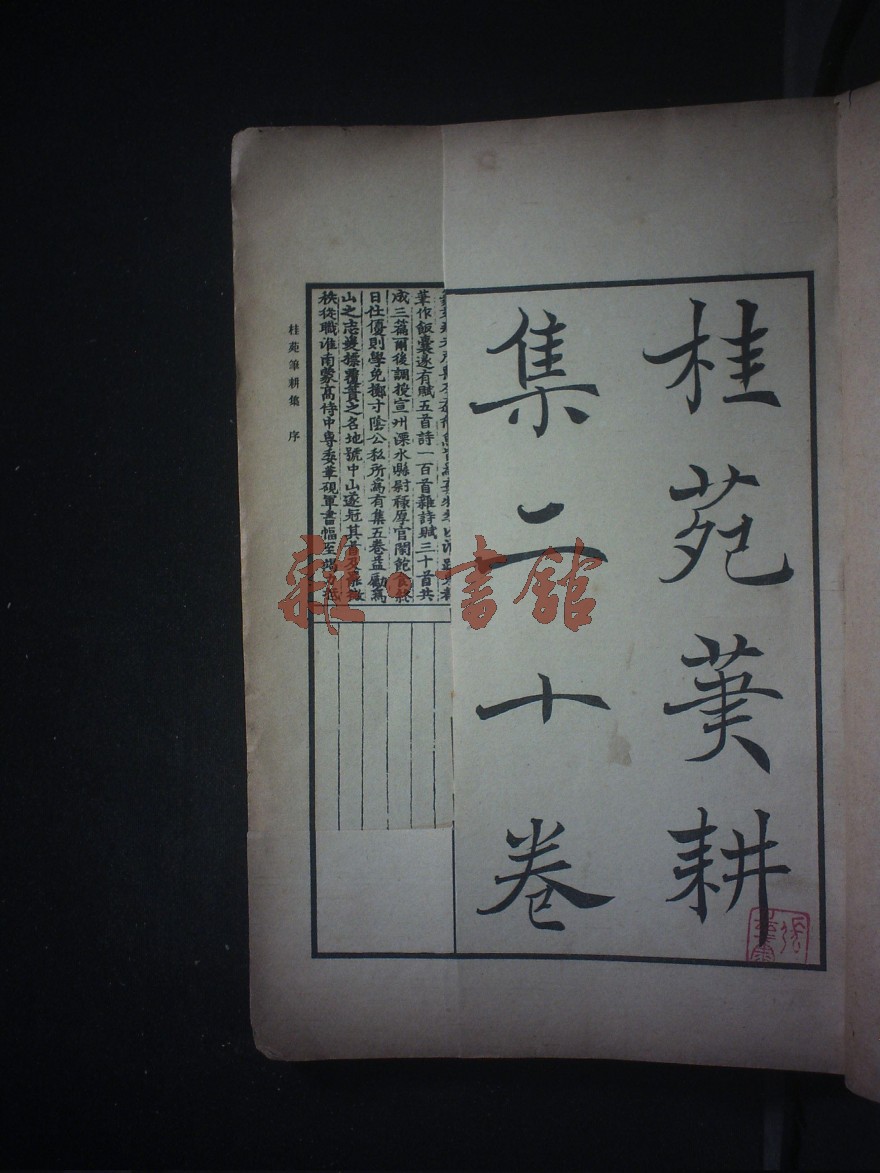 桂苑筆耕
集二十卷
筆作飯囊遂有賦五首詩一百首雜詩賦三十首共
成三篇爾後調授宣州溧水縣尉祿厚官閑飽食終
日仕優則學免擲寸陰公私所爲有集五卷益勵爲
山之志爰標覆簣之名地號中山遂冠其首及罷微
秩從職淮南蒙高侍中專委筆硯軍書幅至
桂苑筆耕集 序
雜·書舘